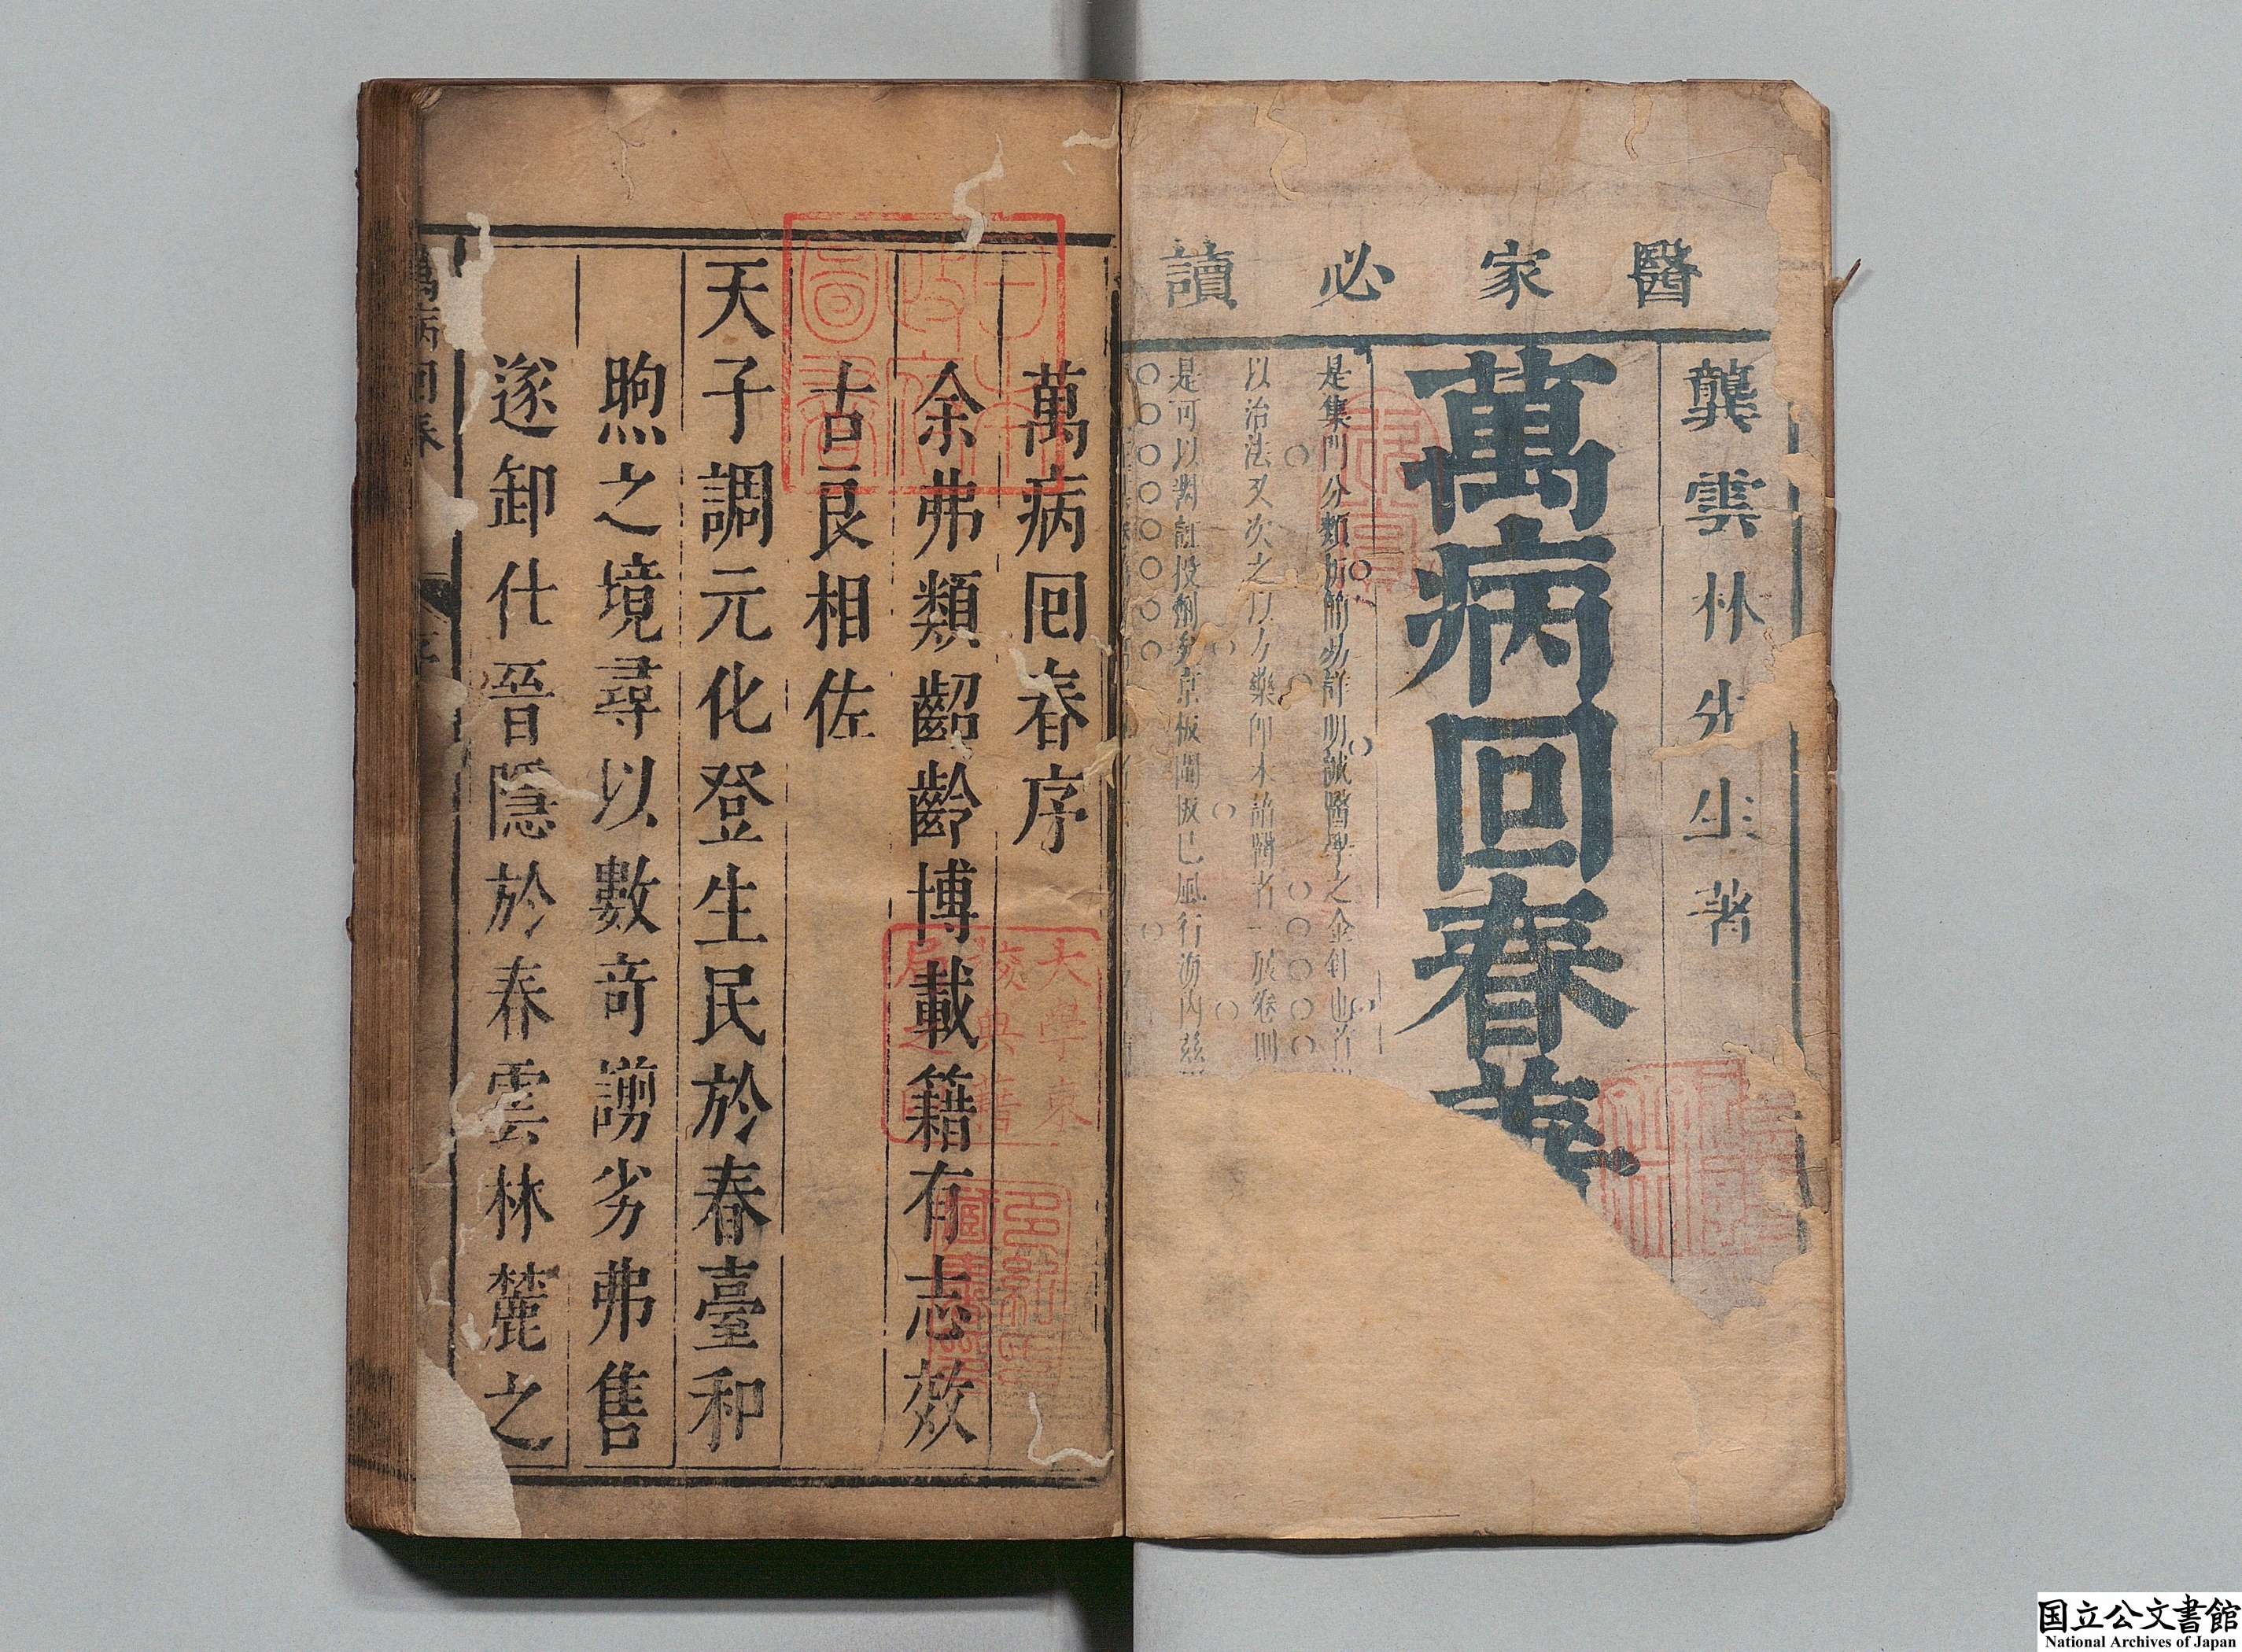 醫家必讀
龔雲林先生著
萬病回春
是集門分類析簡易詳明誠醫學之金針也首
以治法又次之以方藥即未諳醫者一展卷則
是可以對証投劑矣京板閩板已風行海內茲
萬病回春序
余弗類齠齡博載籍有志效
古良相佐
天子調元化登生民於春臺和
煦之境尋以數竒謭劣弗售
遂卸仕晉隱於春雲林麓之
萬病回春
序
大學東
校典籍
局之印
国立公文書館
National Archives of Japan